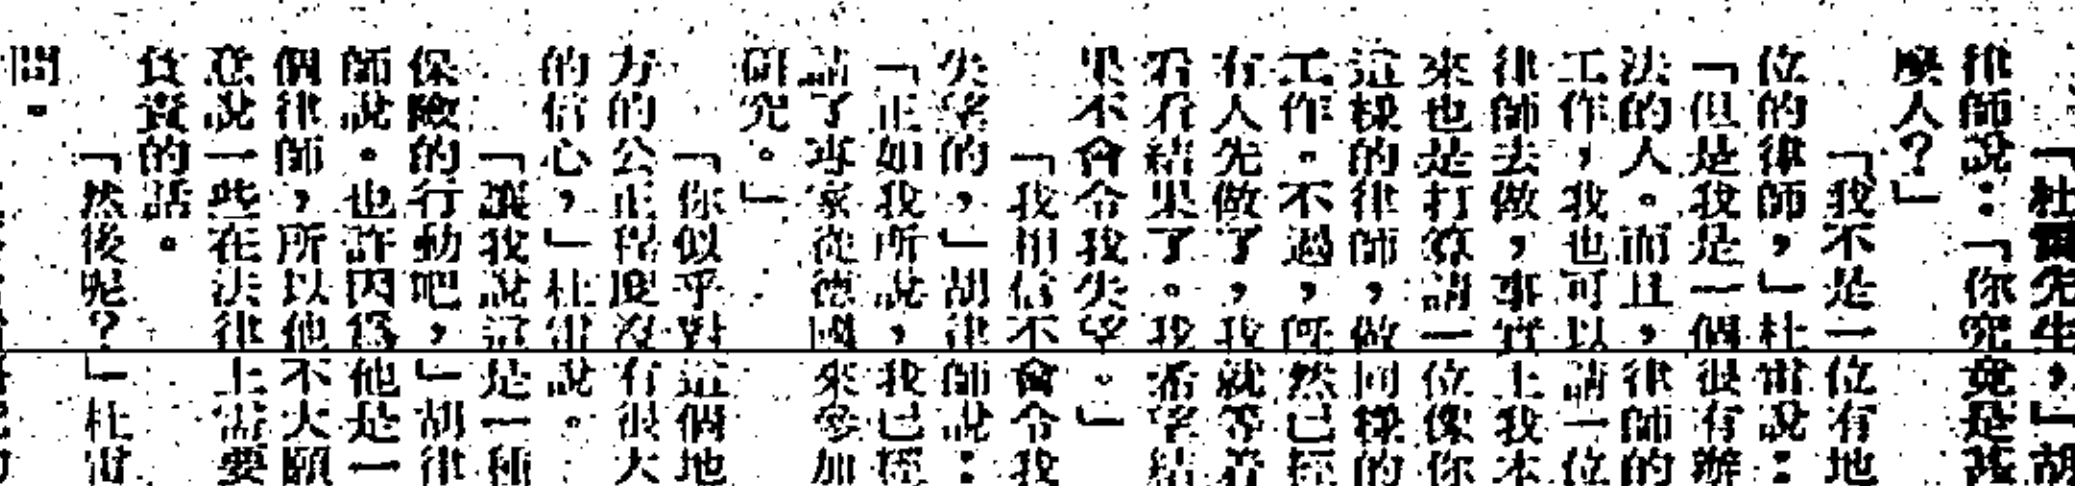 「杜雷先生，」胡
律師說：「你究竟是甚
麼人？」
「我不是一位有地
位的律師，」杜雷說：
「但是我是一個很有辦
法的人。而且，律師的
工作，我也可以請一位
律師去做，事實上我本
來也是打算請一位像你
這樣的律師，做同樣的
工作。不過，既然已經
有人先做了，我就等着
看看結果了。我希望結
果不會令我失望。」
「我相信不會令我
失望的，」胡律師說：
「正如我所說，我已經
請了專家從德國來參加
研究。」
「你似乎對這個地
方的公正程度沒有很大
的信心，」杜雷說。
「讓我說這是一種
保險的行動吧，」胡律
師說。也許因爲他是一
個律師，所以他不大願
意說一些在法律上需要
負責的話。
「然後呢？」杜雷
問。